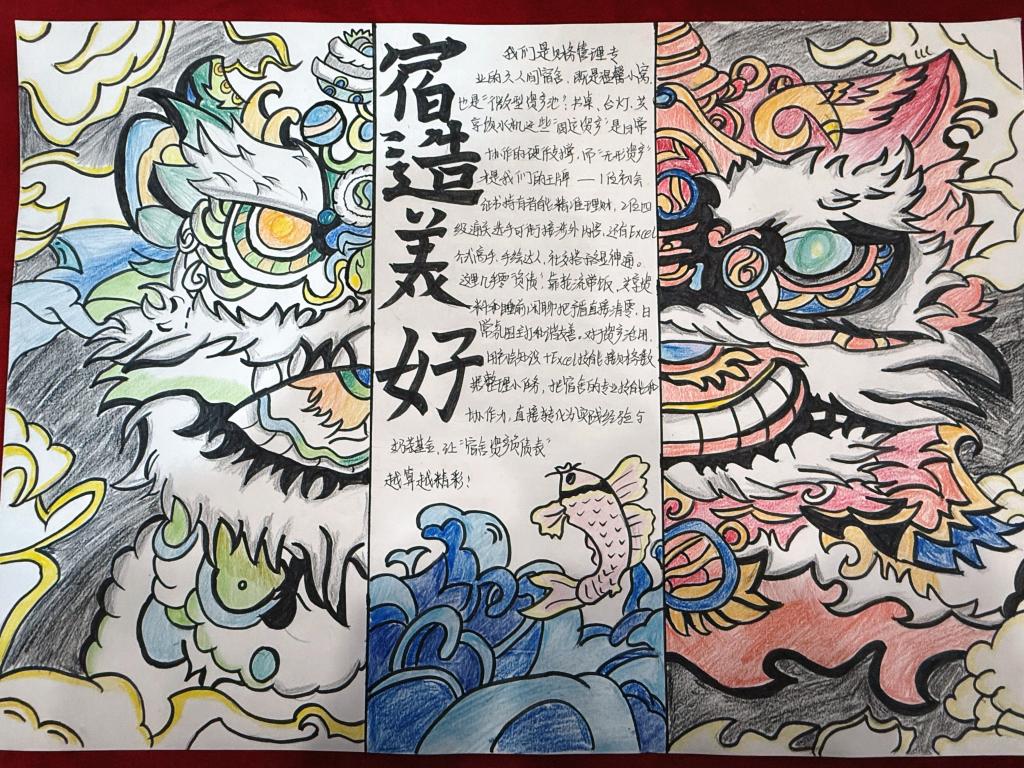 宿造美好
我们是财务管理专
业的六人间宿舍，既是温馨小窝，
也是“微型资产池”？书桌、台灯、共
享饮水机这些“固定资产”是日常
协作的硬件支撑，而“无形资产”
才是我们的王牌——1位初会
证书持有者能精准理财，2位四
级通关选手可衔接涉外内容，还有Excel
公式高手、手绘达人、社交搭子各显神通。
这里几乎零“负债”，靠轮流带饭、共享资
料和睡前闲聊把矛盾直接清零，日
常氛围主打和谐友善，对于资产活用，
用初会知识+Excel技能接财务数
据整理小任务，把宿舍的专业技能和
协作力，直接转化为实战经验与
奶茶基金，让“宿舍资产负债表”
越算越精彩！